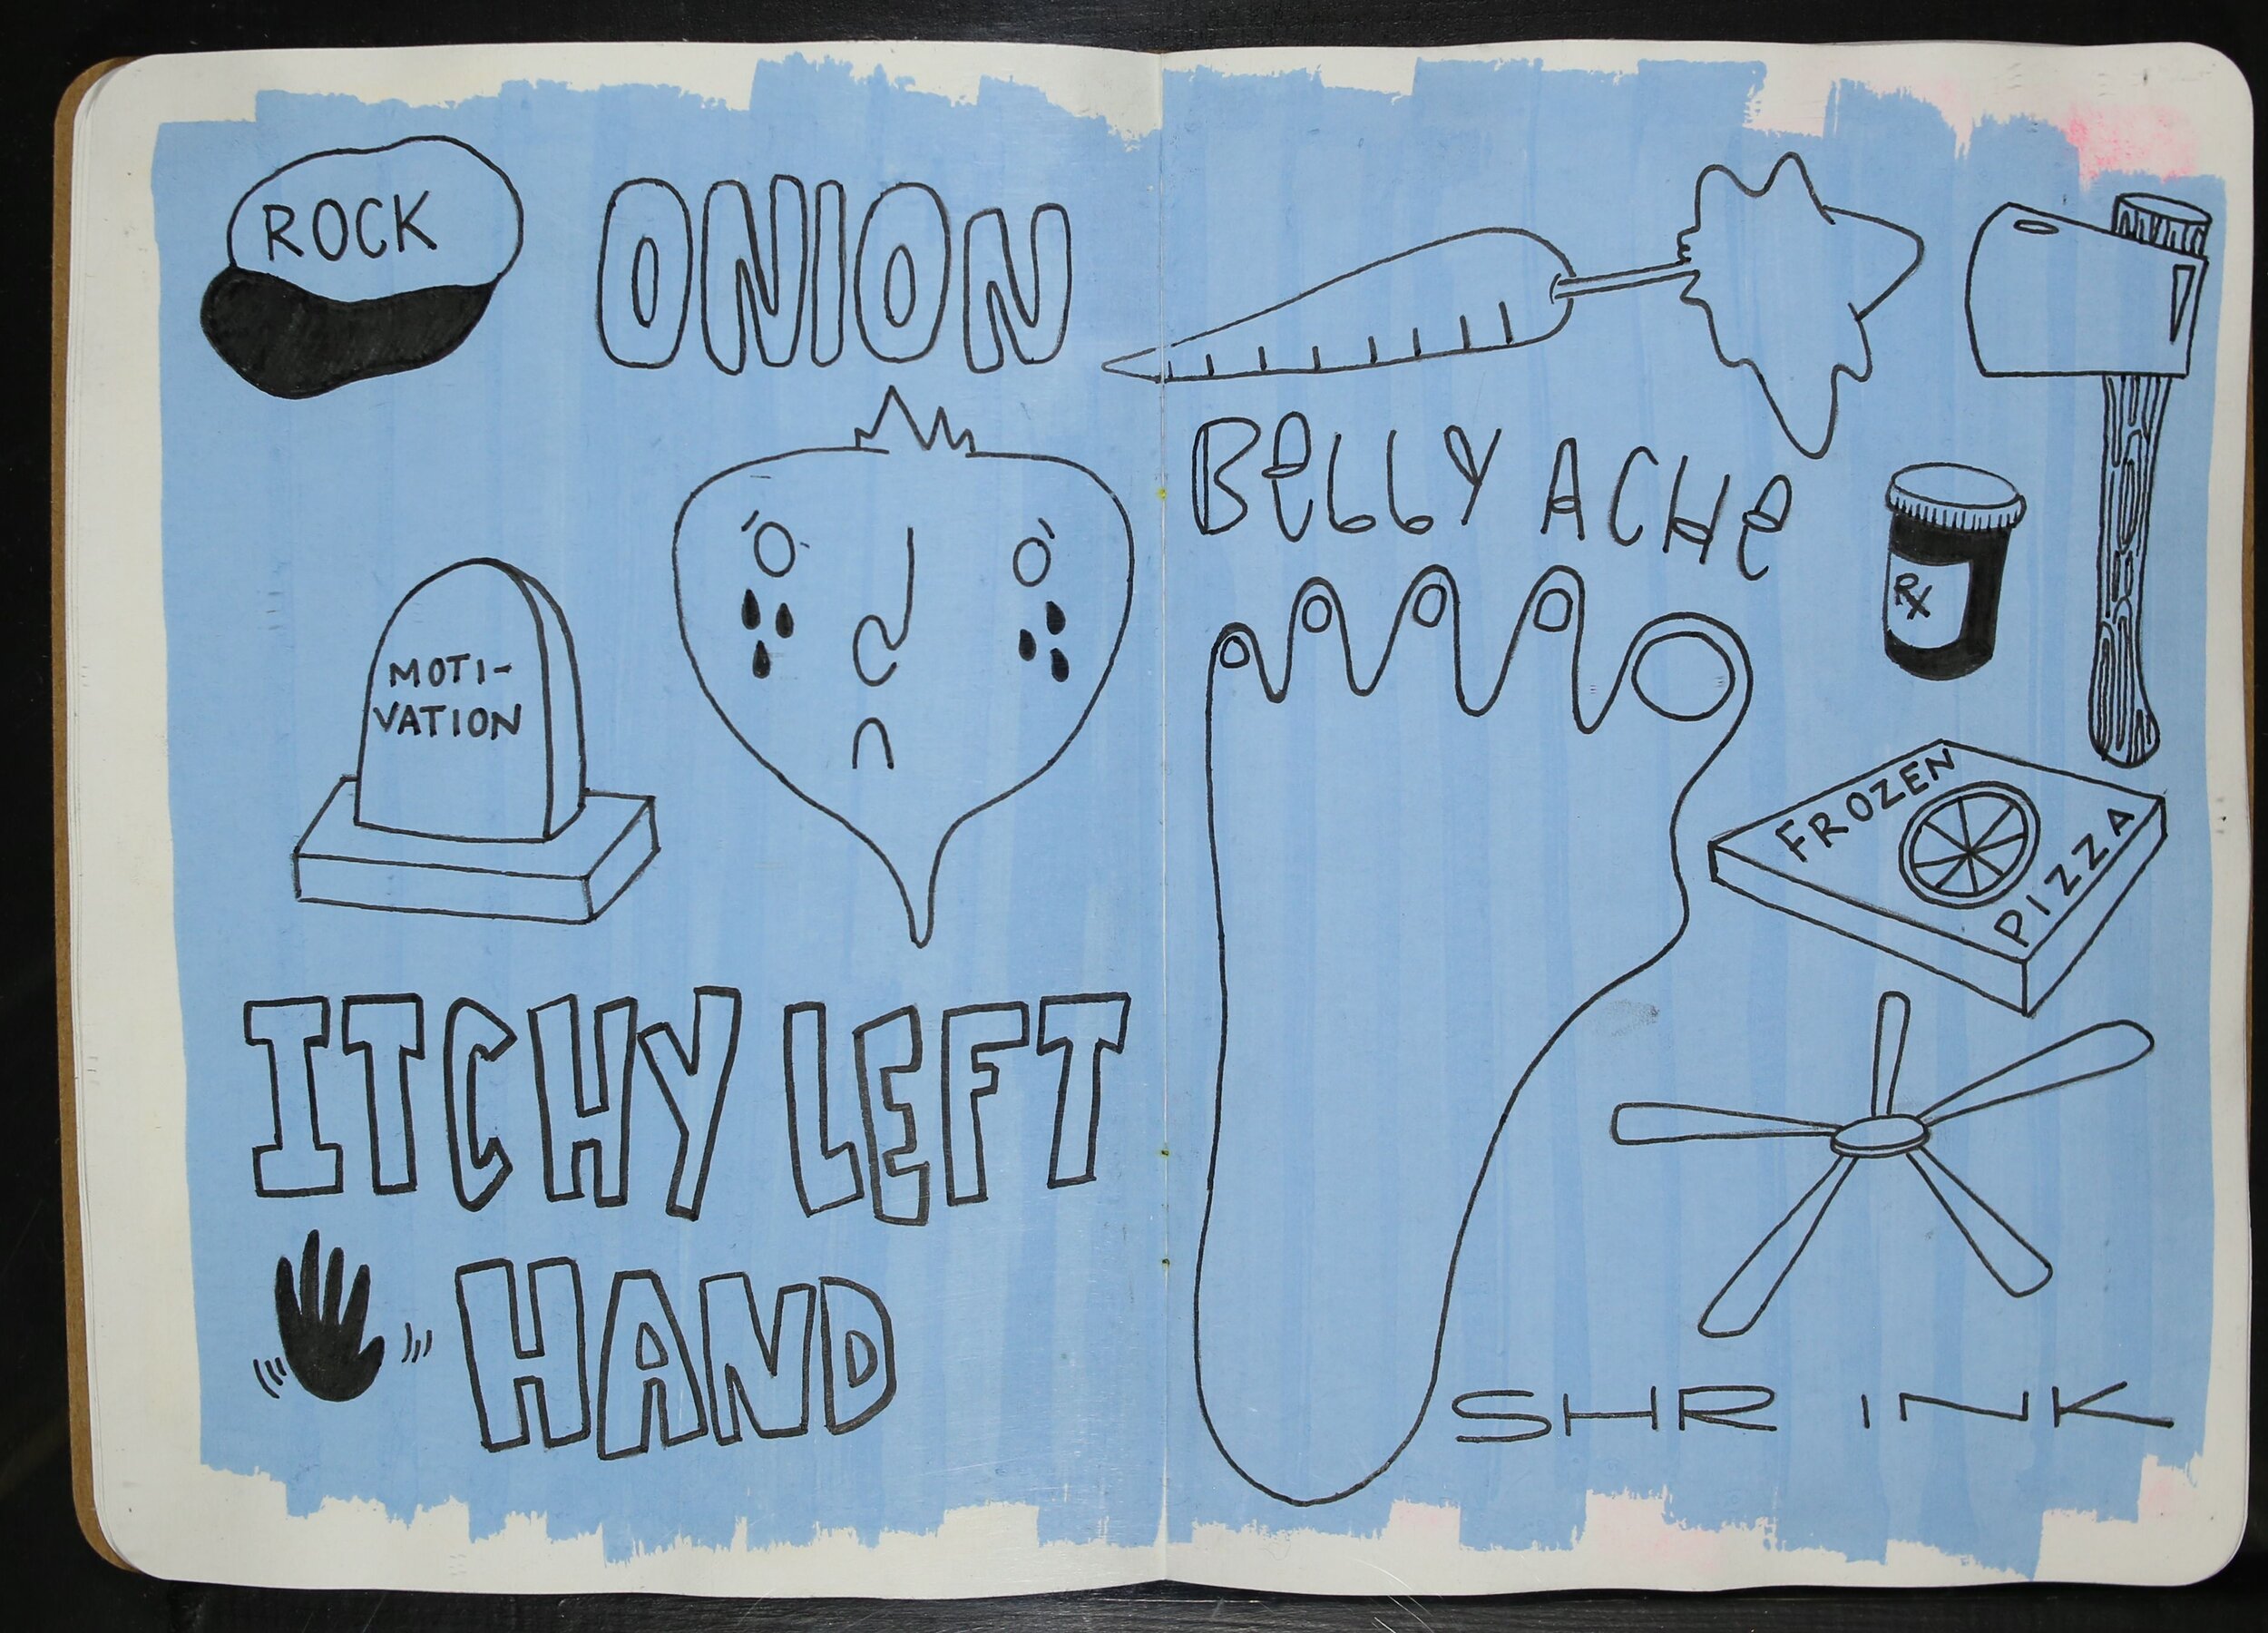 ROCK
ONION
MOTI-
VATION
ITCHY LEFT
HAND
BELLY ACHE
Rx
FROZEN
PIZZA
SHRINK